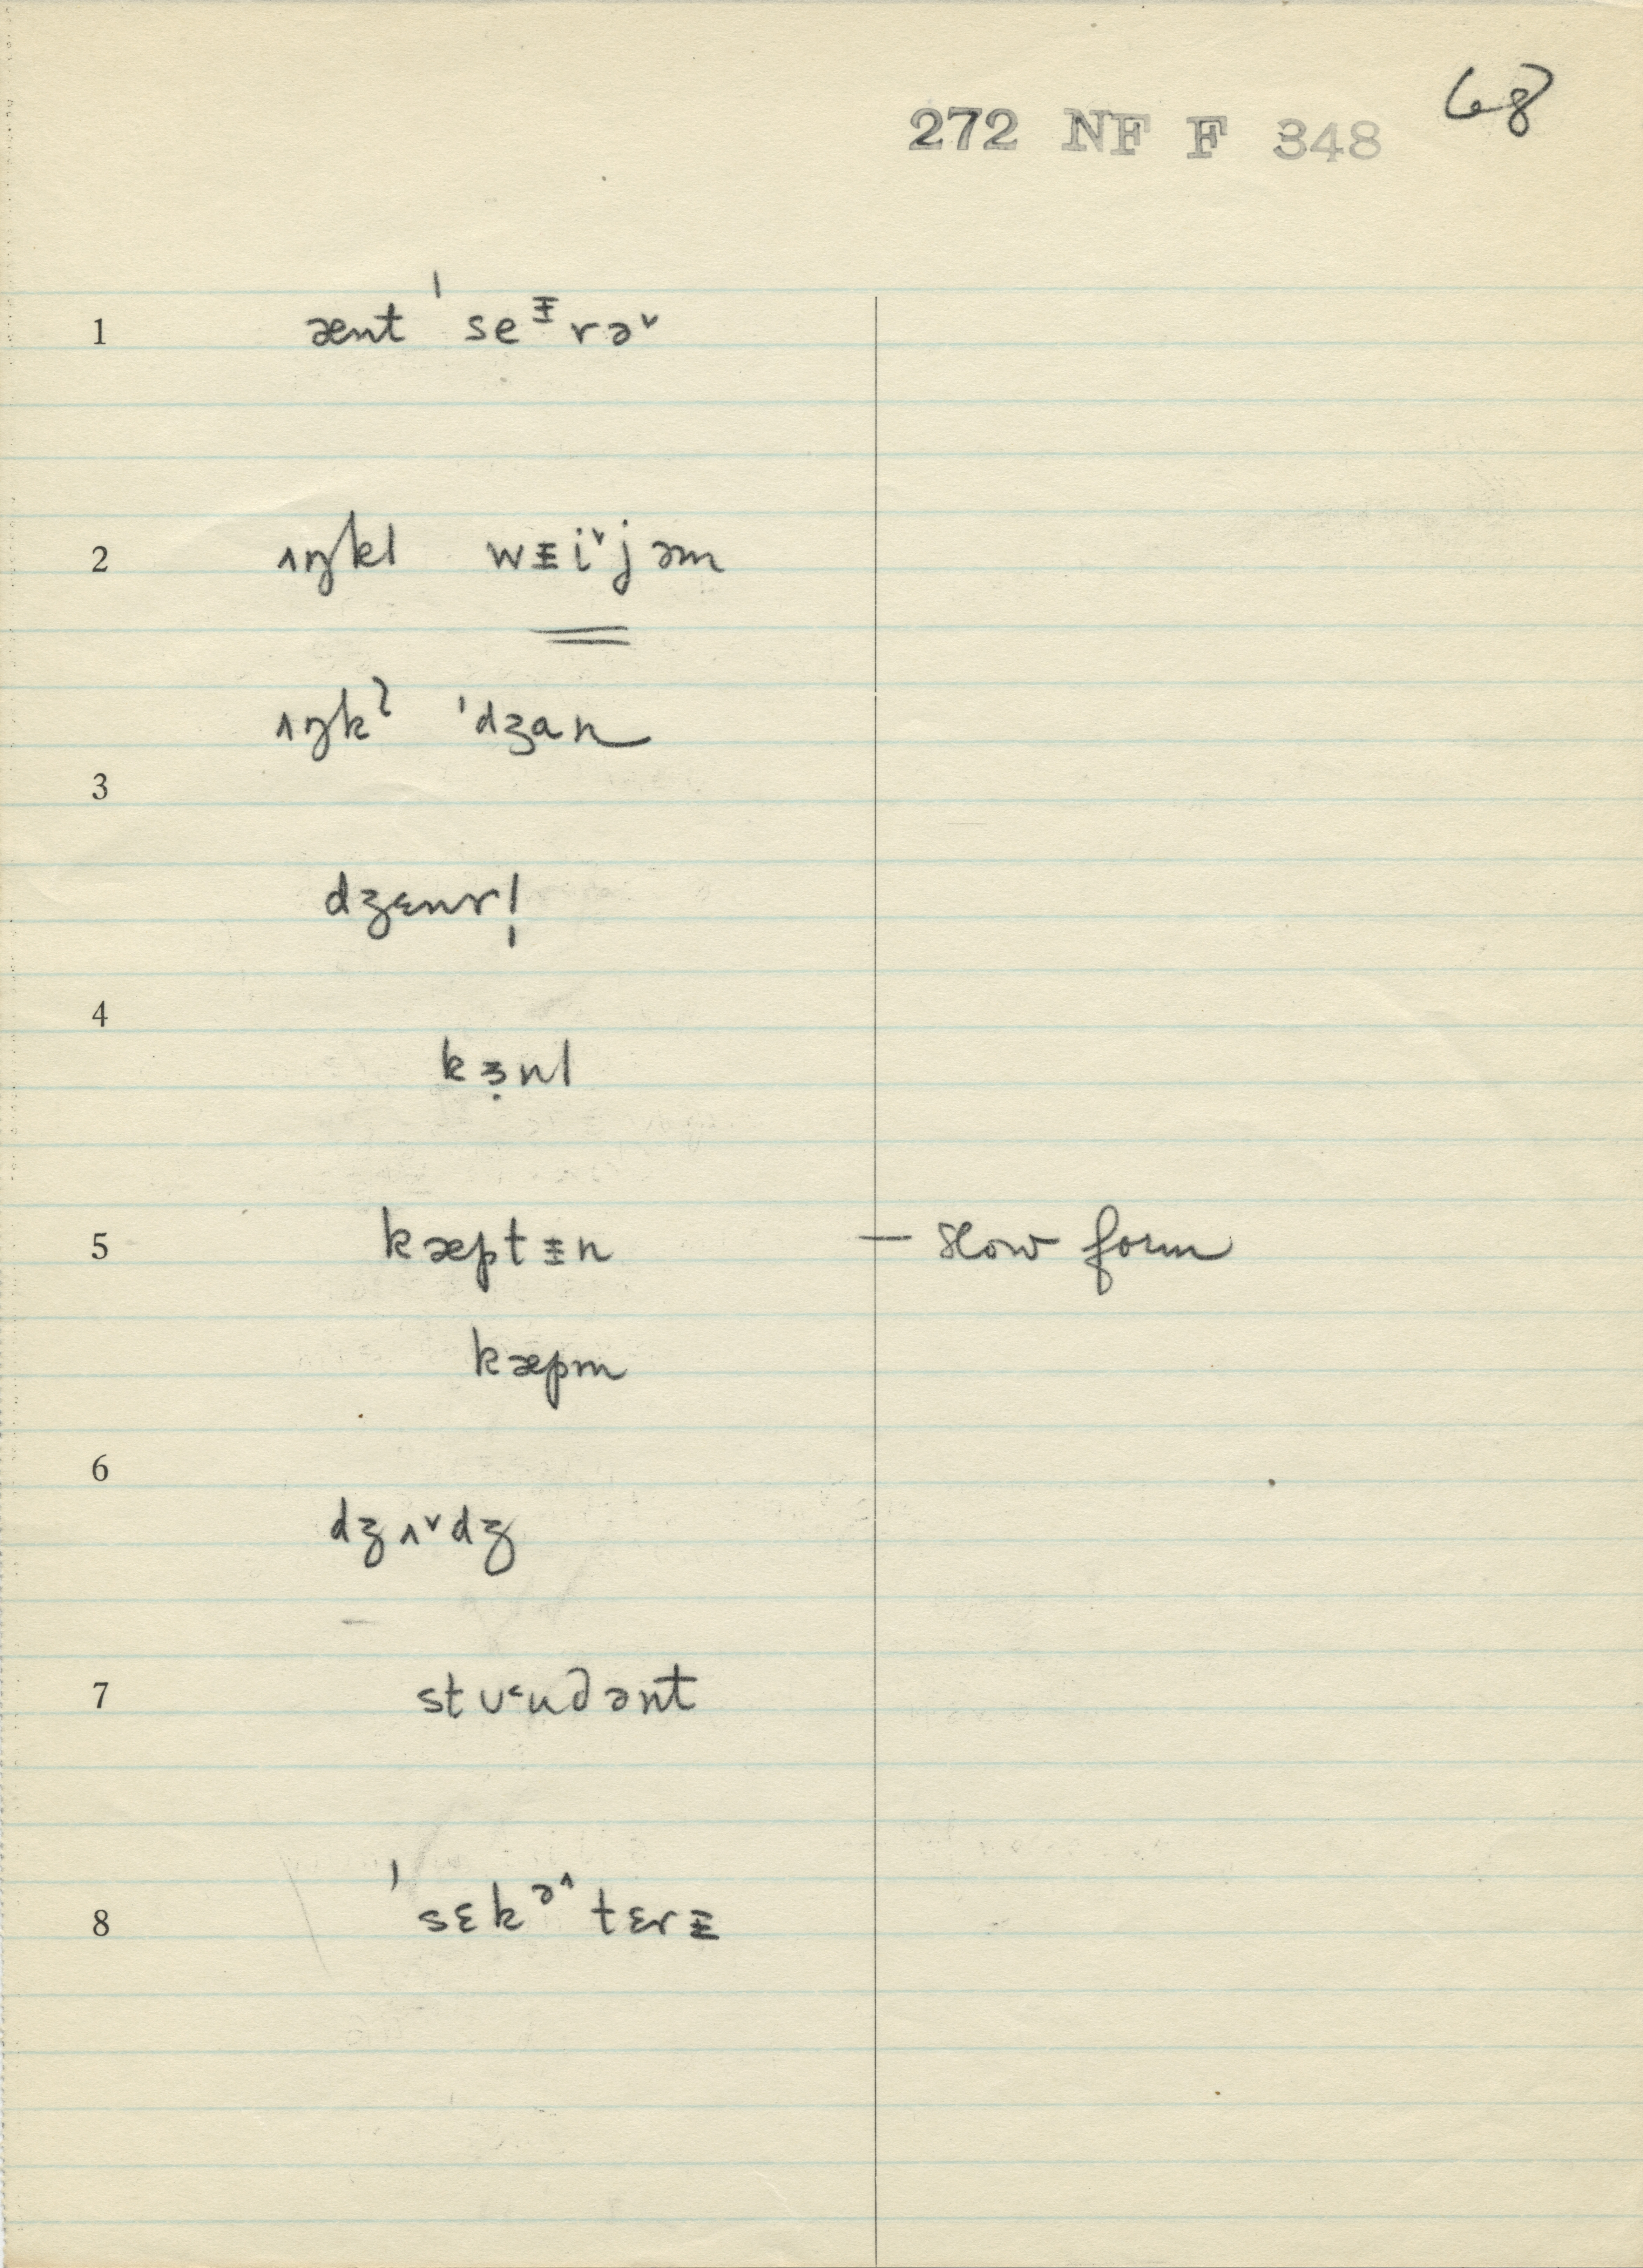 68
272 NF F 348
1 ænt ˈseᵻrə˅
2 ʌŋkl wᵻi˅jəm
ʌŋkˀ ˈdʒan
3
dʒɛnrl̩
4
kɜ̣nl
5 kæptᵻn — slow form
kæpm
6
dʒʌ˅dʒ
7 stʊ˂ud̬ənt
8 ˈsɛkᵊ˄tɛrᵻ